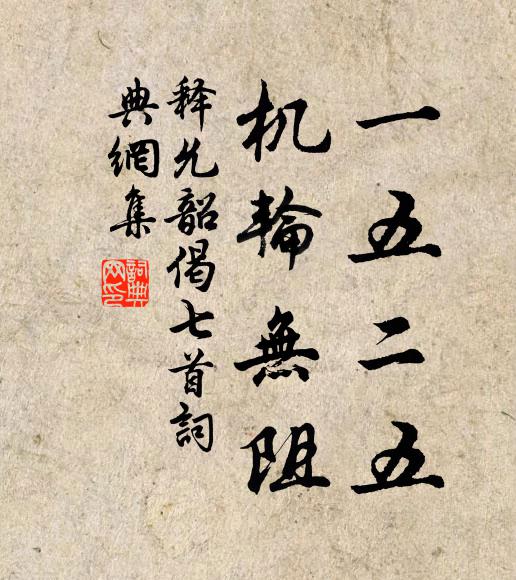 一五二五
机輪無阻
释允韶偈七首詞
典網集
詞典
网印